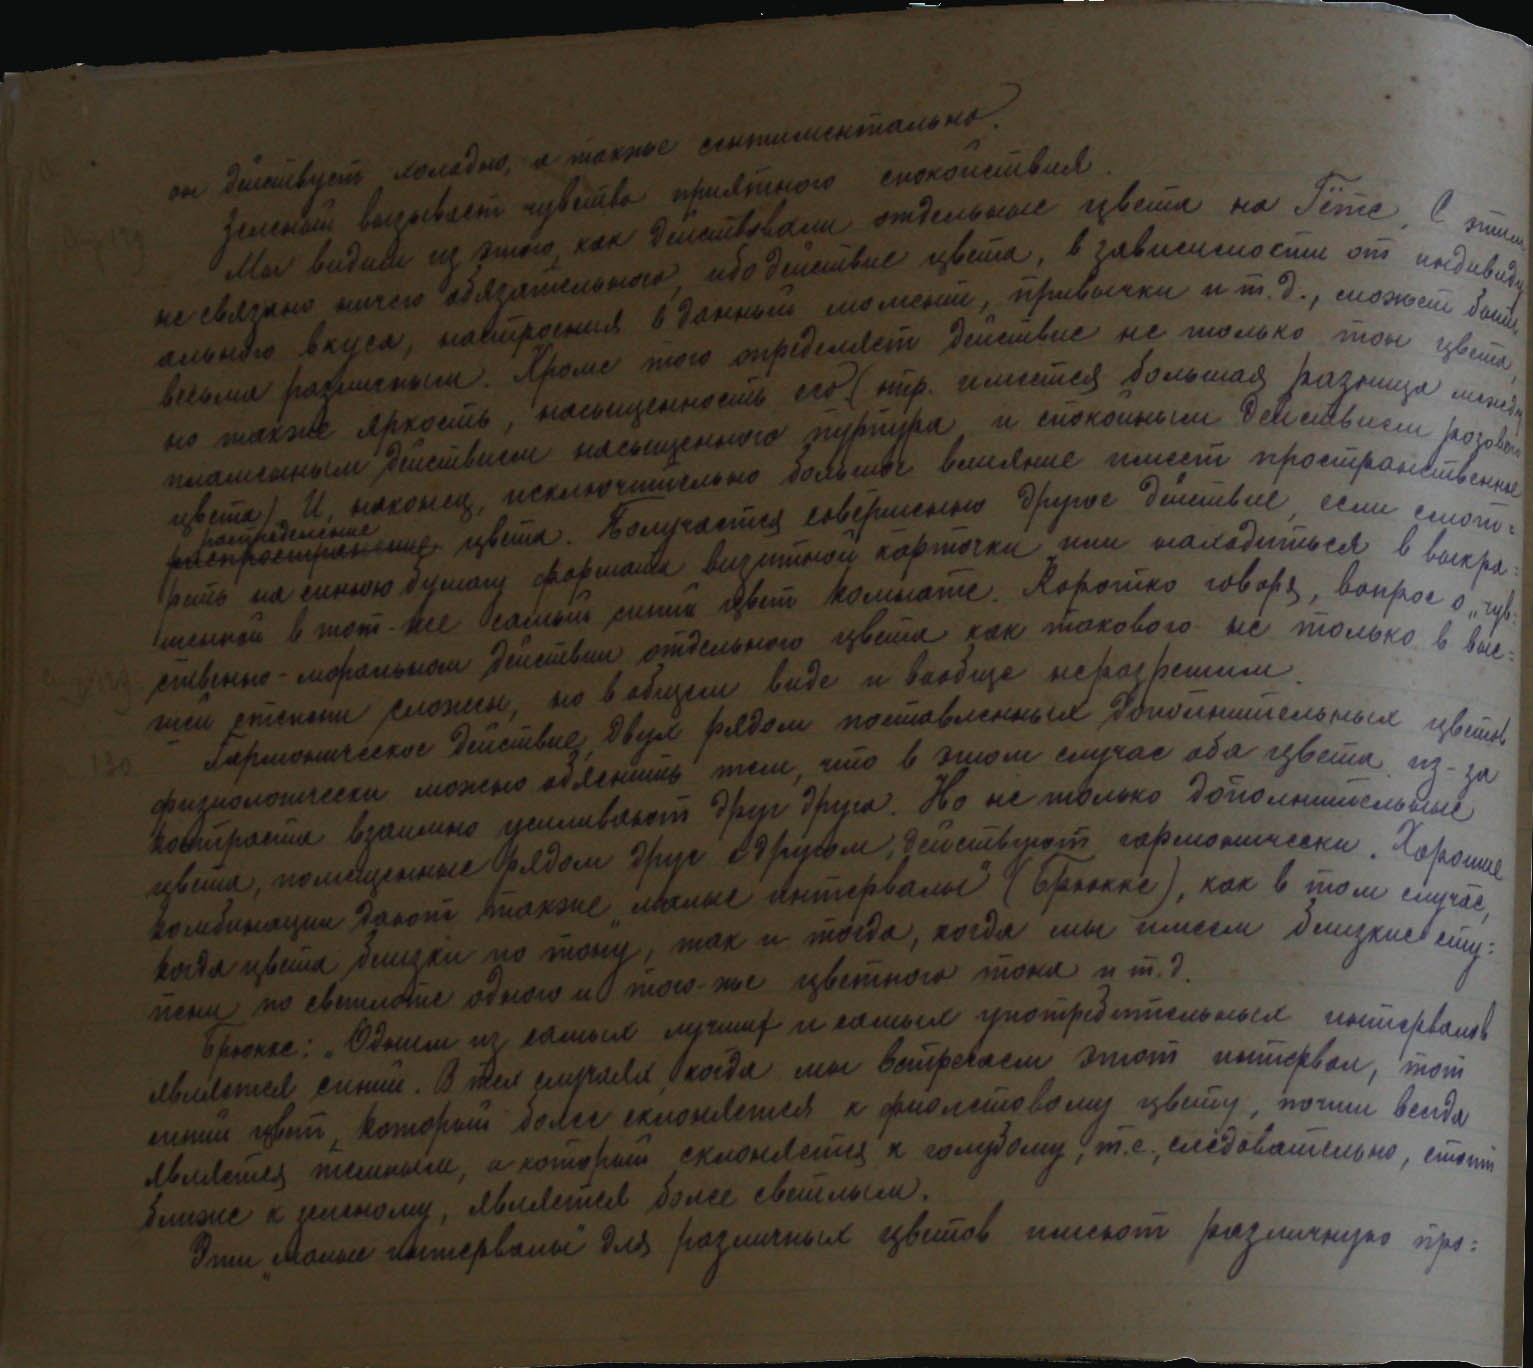 он действует холодно, а также сентиментально.
Зеленый вызывает чувство приятного спокойствия.
Мы видим из этого, как действовали отдельные цвета на Гёте. С этим
не связано ничего обязательного, ибо действие цвета, в зависимости от индивиду
ального вкуса, настроения в данный момент, привычки и т.д., может быть
весьма различным. Кроме того определяет действие не только тон цвета,
но также яркость, насыщенность его (нпр. имеется большая разница между
пламенным действием насыщенного пурпура и спокойным действием розового
цвета). И, наконец, исключительно большое влияние имеет пространственное
распределение
распространение цвета. Получается совершенно другое действие, если смот=
реть на синюю бумагу формата визитной карточки или находиться в выкра=
шенной в тот-же самый синий цвет комнате. Коротко говоря, вопрос о „чув=
ственно-моральном" действии отдельного цвета как такового не только в выс=
шей степени сложен, но в общем виде и вообще неразрешим.
130
Гармоническое действие двух рядом поставленных дополнительных цветов
физиологически можно объяснить тем, что в этом случае оба цвета из-за
контраста взаимно усиливают друг друга. Но не только дополнительные
цвета, помещенные рядом друг с другом, действуют гармонически. Хорошие
комбинации дают также „малые интервалы" (Брюкке), как в том случае,
когда цвета близки по тону, так и тогда, когда мы имеем близкие сту=
пени по светлоте одного и того-же цветного тона и т.д.
Брюкке: „Одним из самых лучших и самых употребительных интервалов
является синий. В тех случаях, когда мы встречаем этот интервал, тот
синий цвет, который более склоняется к фиолетовому цвету, почти всегда
является темным, а который склоняется к голубому, т.е., следовательно, стоит
ближе к зеленому, является более светлым.
Эти „малые интервалы" для различных цветов имеют различную про=